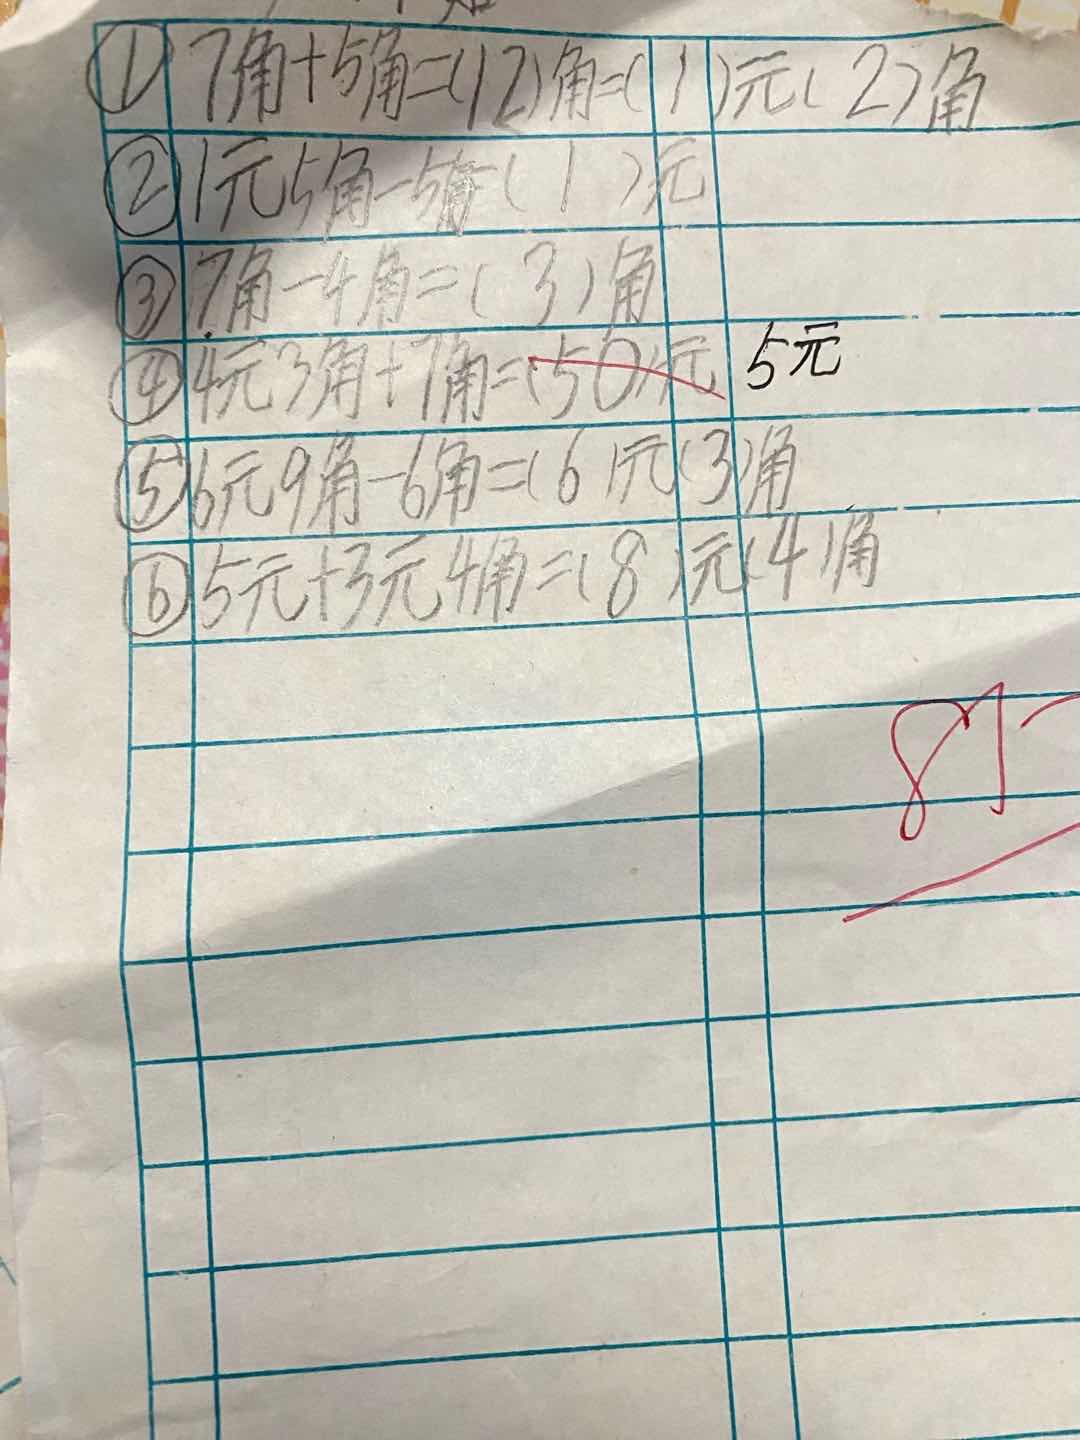 ① 7角+5角=(12)角=(1)元(2)角
② 1元5角-5角(1)元
③ 7角-4角=(3)角
④ 4元3角+7角=(50)元 5元
⑤ 6元9角-6角=(6)元(3)角
⑥ 5元+3元4角=(8)元(4)角